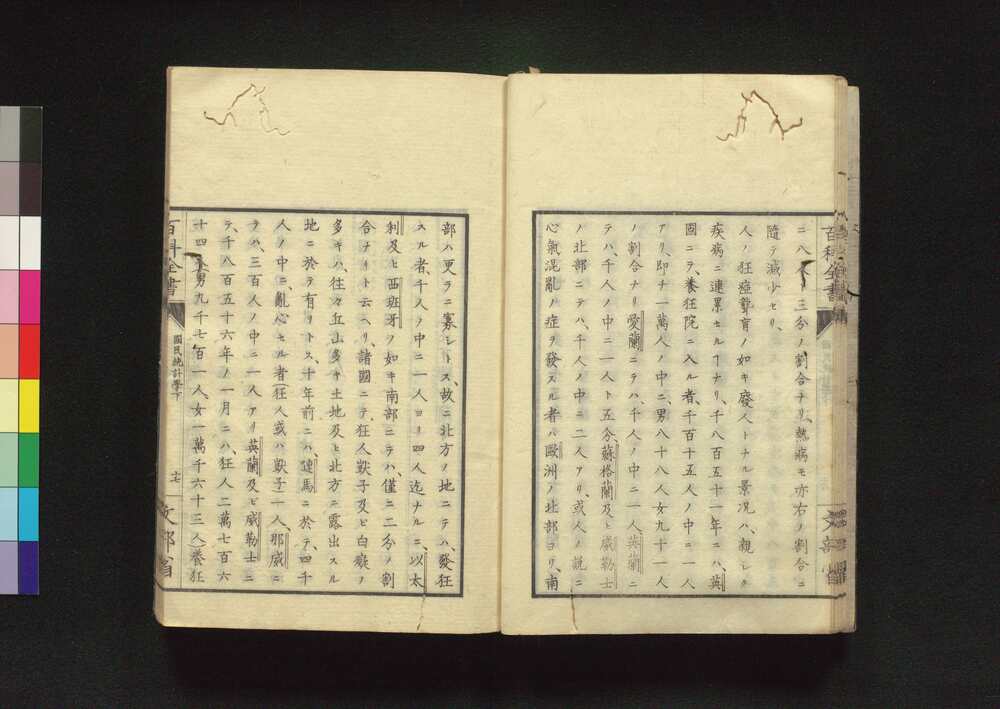 ニ八人三分ノ割合ナリ、熱病モ亦右ノ割合ニ
隨テ減少セリ、
人ノ狂瘂聾盲ノ如キ廢人トナル景况ハ、親シク
疾病ニ連累セルヿナリ、千八百五十一年ニハ、英
國ニテ、養狂院ニ入ル者、千百十五人ノ中ニ一人
アリ、即チ一萬人ノ中ニ、男八十八人女九十一人
ノ割合ナリ愛蘭ニテハ、千人ノ中ニ一人英蘭ニ
テハ、千人ノ中ニ一人ト五分、蘇格蘭及ヒ威勒士
ノ北部ニテハ、千人ノ中ニ二人アリ、或人ノ説ニ
心氣混亂ノ症ヲ發スル者ハ歐洲ノ北部ヨリ、南
百科全書
文部省
部ハ更ラニ寡シトス、故ニ北方ノ地ニテハ、發狂
スル者、千人ノ中ニ一人ヨリ四人迄ナルニ、以太
利及ヒ西班牙ノ如キ南部ニテハ、僅ニ二分ノ割
合ナリト云ヘリ、諸國ニテ、狂人獃子及ヒ白癡ノ
多キハ、往々丘山多キ土地及ヒ北方ニ露出スル
地ニ於テ有リトス、十年前ニハ、嗹馬ニ於テ、四千
人ノ中ニ亂心セル者(狂人或ハ獃子)一人、那威ニ
テハ、三百人ノ中ニ一人アリ英蘭及ビ威勒士ニ
テ、千八百五十六年ノ一月ニハ、狂人二萬七百六
十四人男九千七百一人、女一萬千六十三人)養狂
百科全書
國民統計學下
十七
文部省